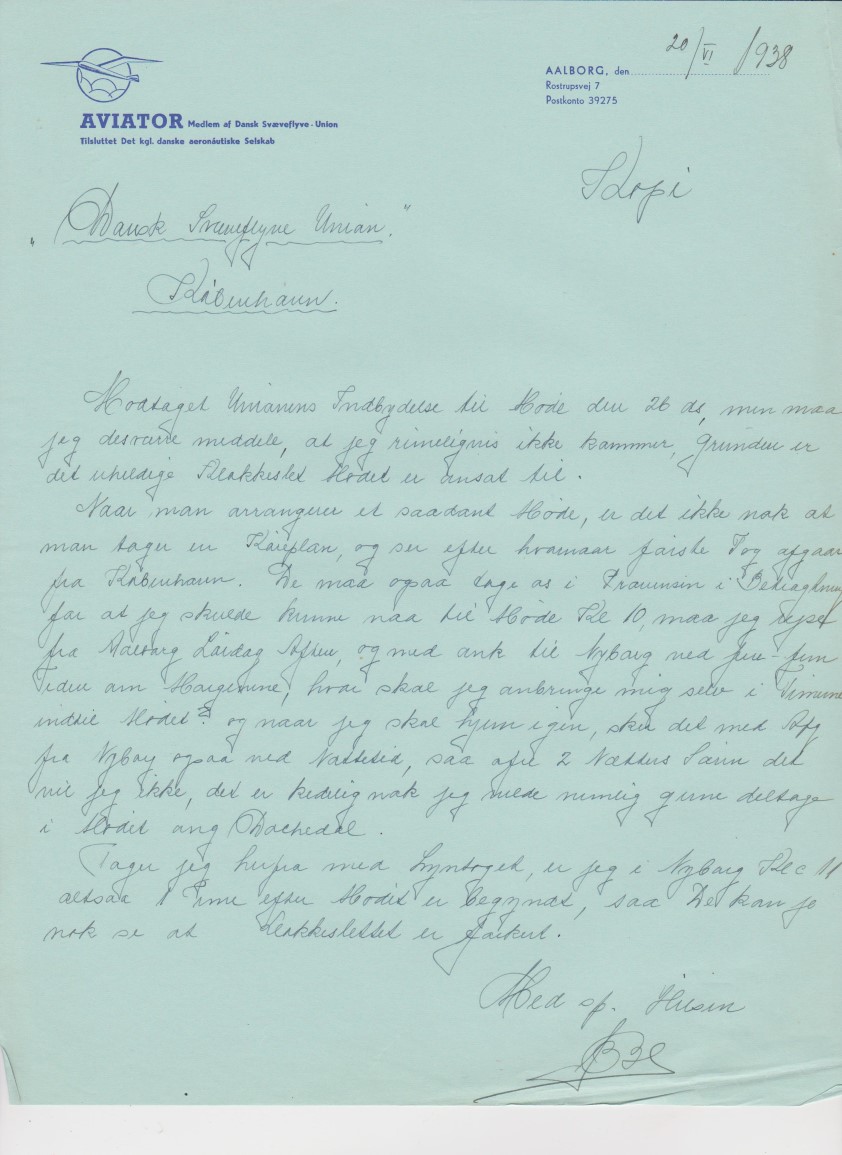 AALBORG, den 20/VI 1938
Rostrupsvej 7
Postkonto 39275
AVIATOR Medlem af Dansk Svæveflyve-Union
Tilsluttet Det kgl. danske aeronáutiske Selskab
Kopi
"Dansk Svæveflyve Union."
København.
Modtaget Unionens Indbydelse til Møde den 26 ds, men maa
jeg desværre meddele, at jeg rimeligvis ikke kommer, Grunden er
det uheldige Klokkeslet Mødet er ansat til.
Naar man arrangerer et saadant Møde, er det ikke nok at
man tager en Køreplan, og ser efter hvornaar første Tog afgaar
fra København. De maa ogsaa tage os i Provinsin i Betragtning
for at jeg skulde kunne naa til Møde Kl 10, maa jeg rejse
fra Aalborg Lørdag Aften, og med ank til Nyborg ved fire-fem
Tiden om Morgenene, hvor skal jeg anbringe mig selv i Timerne
indtil Mødet? og naar jeg skal hjem igen, sker det med Afg
fra Nyborg ogsaa ved Nattetid, saa ofre 2 Nætters Søvn det
vil jeg ikke, det er kedelig nok jeg vilde nemlig gerne deltage
i Mødet ang
Tager jeg herfra med Lyntoget, er jeg i Nyborg Kl c 11
altsaa 1 Time efter Mødet er begyndt, saa De kan jo
nok se at Klokkeslettet er forkert.
Med sp. Hilsen